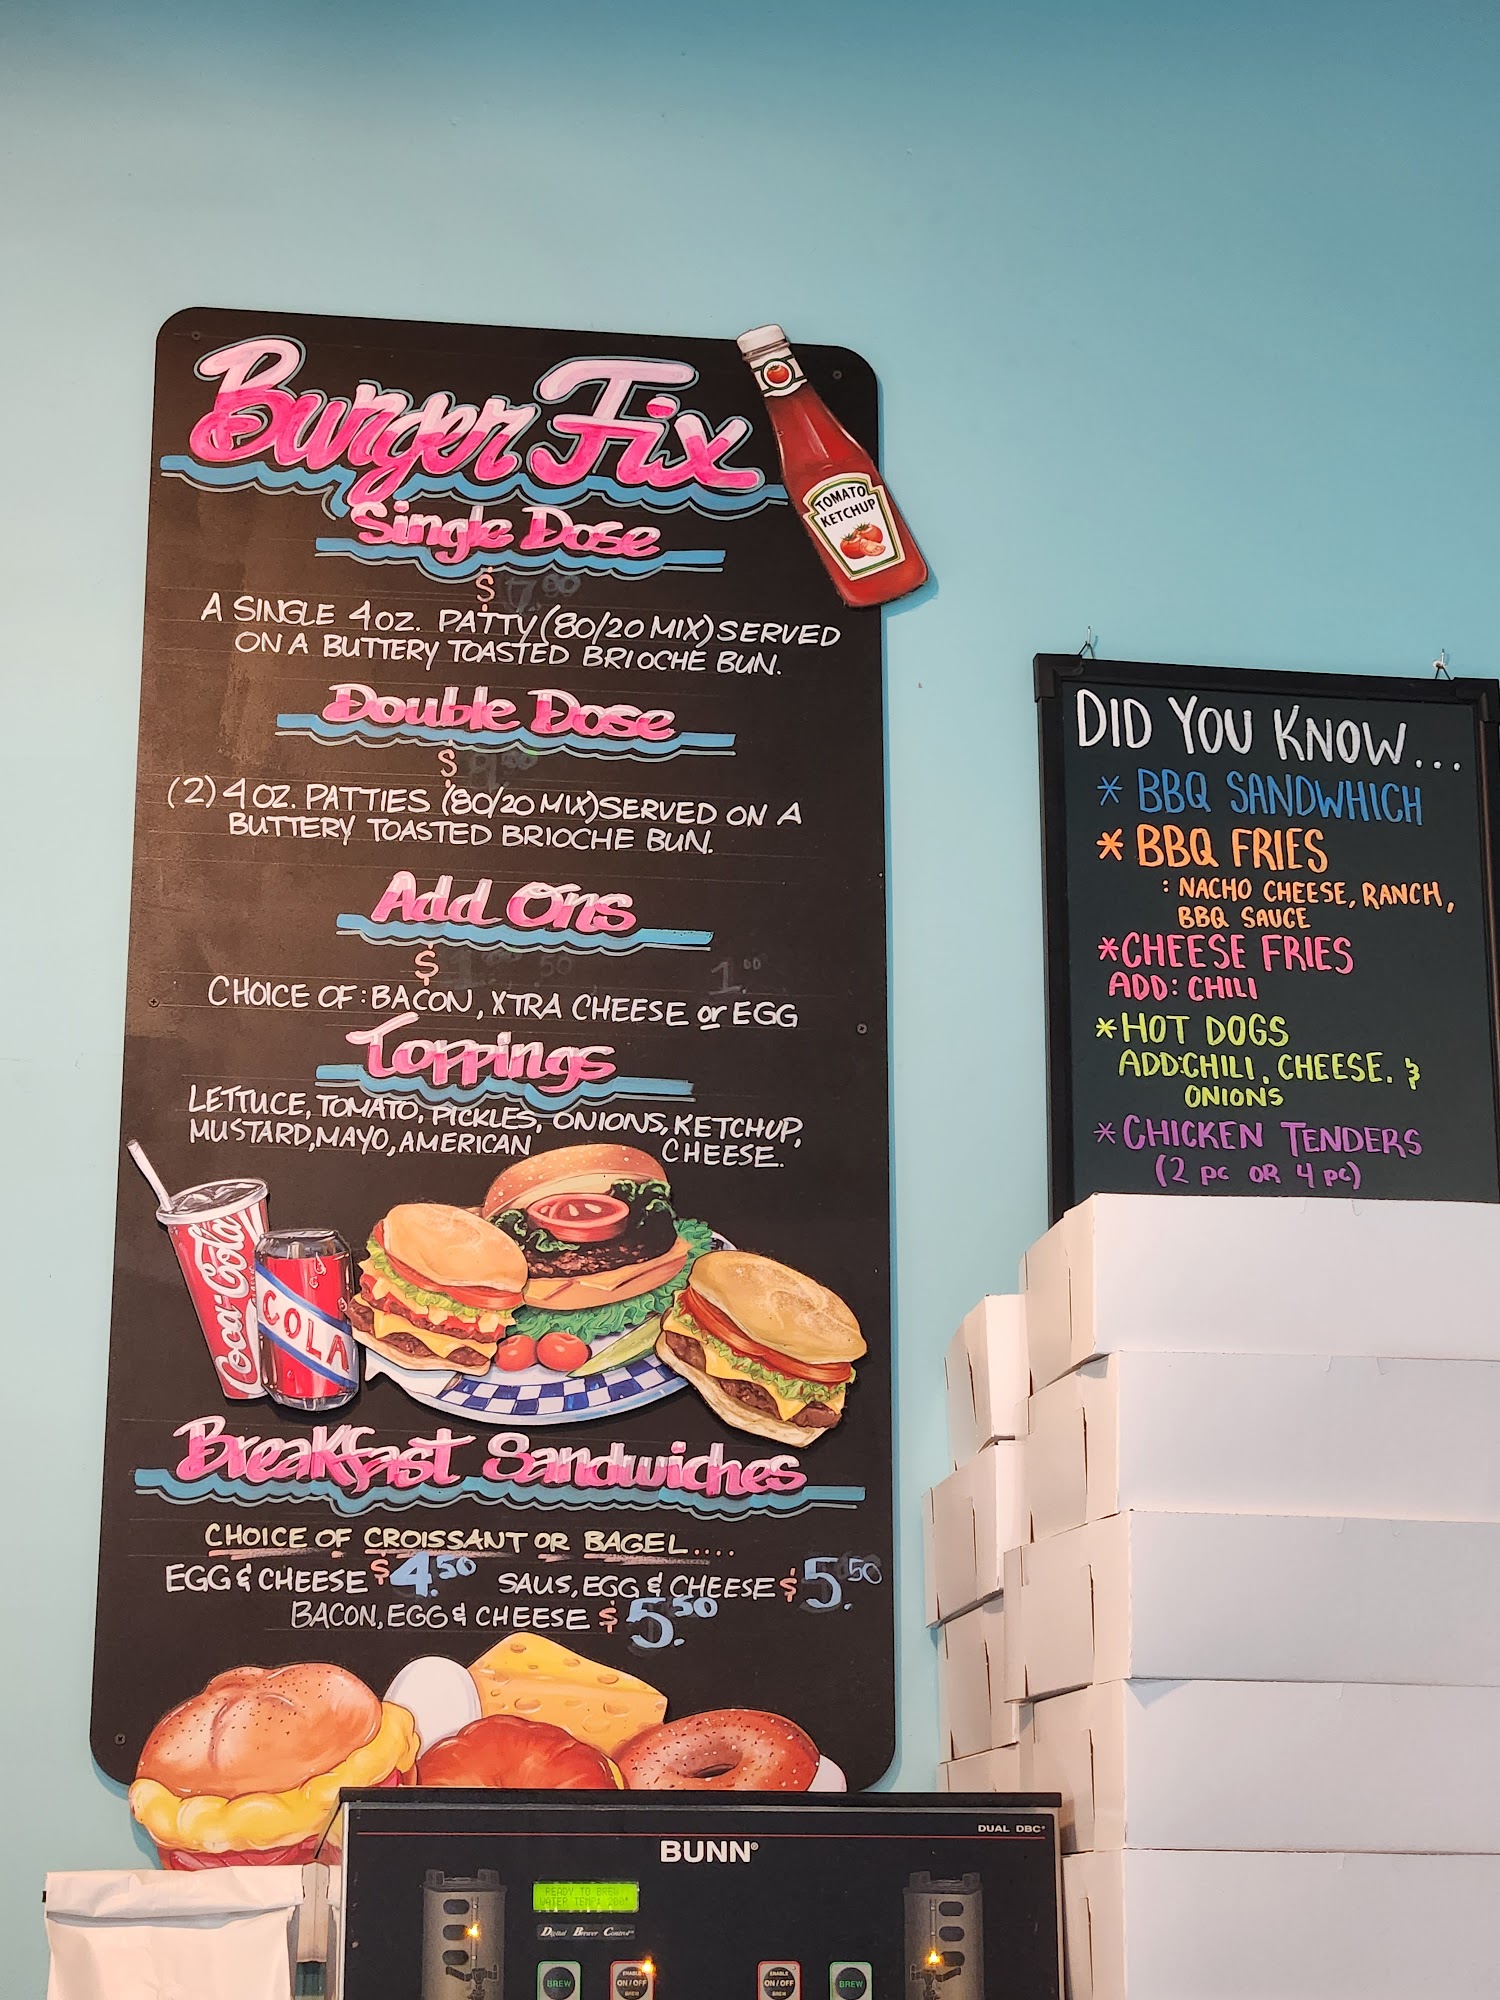 Burger Fix
TOMATO
KETCHUP
Single Dose
$
A SINGLE 4 OZ. PATTY (80/20 MIX) SERVED
ON A BUTTERY TOASTED BRIOCHE BUN.
Double Dose
$
(2) 4 OZ. PATTIES (80/20 MIX) SERVED ON A
BUTTERY TOASTED BRIOCHE BUN.
Add Ons
$
1.00
CHOICE OF: BACON, XTRA CHEESE or EGG
Toppings
LETTUCE, TOMATO, PICKLES, ONIONS, KETCHUP,
MUSTARD, MAYO, AMERICAN CHEESE.
Coca-Cola
COLA
Breakfast Sandwiches
CHOICE OF CROISSANT OR BAGEL....
EGG & CHEESE $4.50 SAUS, EGG & CHEESE $5.50
BACON, EGG & CHEESE $5.50
DID YOU KNOW...
* BBQ SANDWHICH
* BBQ FRIES
: NACHO CHEESE, RANCH,
BBQ SAUCE
*CHEESE FRIES
ADD: CHILI
*HOT DOGS
ADD:CHILI, CHEESE, &
ONIONS
*CHICKEN TENDERS
(2 pc OR 4 pc)
DUAL DBC®
BUNN®
READY TO BREW
WATER TEMP: 200°
Digital Brewer Control™
BREW
ENABLE
ON/OFF
BREW
ENABLE
ON/OFF
BREW
BREW